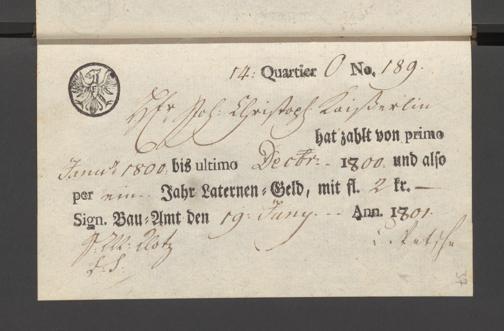 14: Quartier O No. 189.
Hr. Joh: Christoph Kaißerlin
hat zahlt von primo
Januar 1800. bis ultimo Decbr: -- 1800. und also
per ein -- Jahr Laternen-Geld, mit fl. 2 kr. —
Sign. Bau-Amt den 19. Juny. -- Ann. 1801.
J: W: Klotz